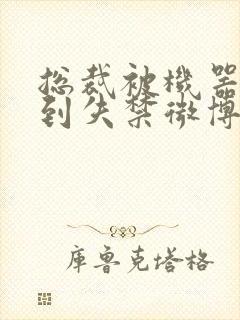 总裁被機器
到失禁微博
库鲁克塔格